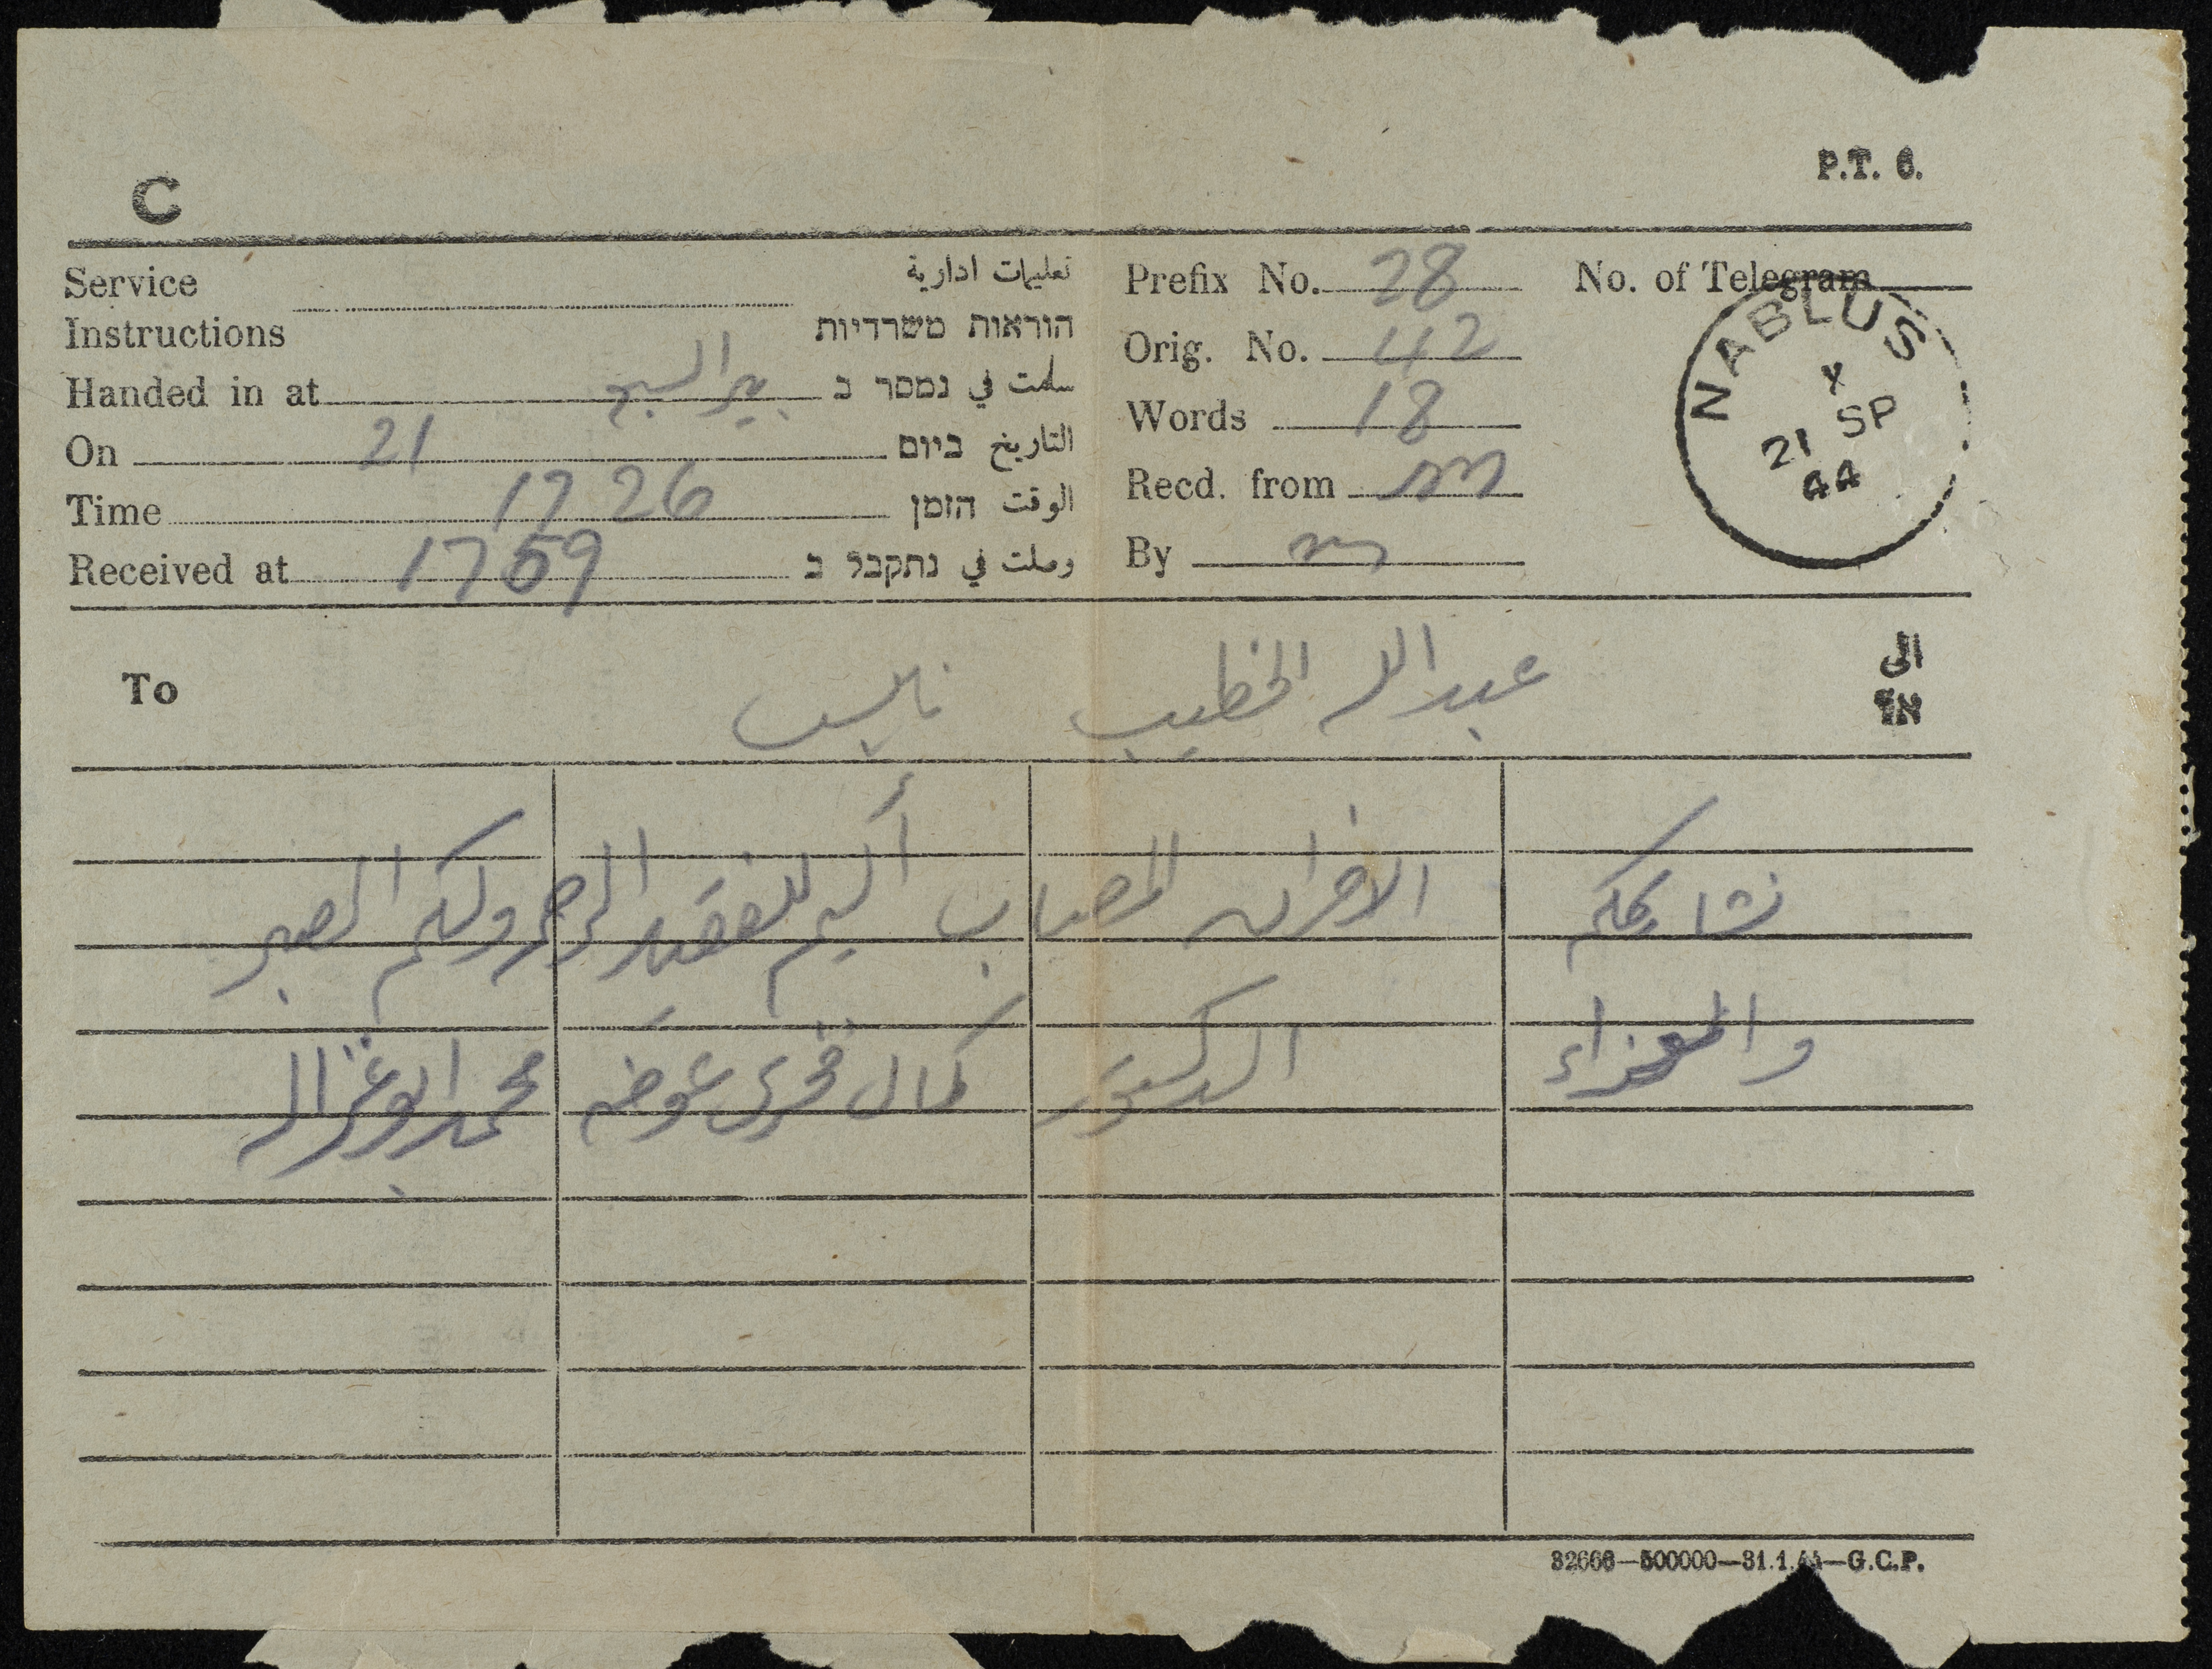 P.T. 6.
C
Service Instructions تعليمات ادارية
הוראות משרדיות
Handed in at بير السبع سلمت في נמסר ב
On 21 التاريخ ביום
Time 17 26 الوقت הזמן
Received at 1759 وصلت في נתקבל ב
Prefix No. 28
Orig. No. 42
Words 18
Recd. from
By
No. of Telegram
NABLUS
21 SP
44
To عبد الله الخطيب نابلس الى
אל
نشاركم الاحزان المصاب أليم للفقيد الرحمة ولكم الصبر
والعزاء الدكتور كمال فخري عوض محمد ابو غزاله
32666—500000—31.1.44—G.C.P.